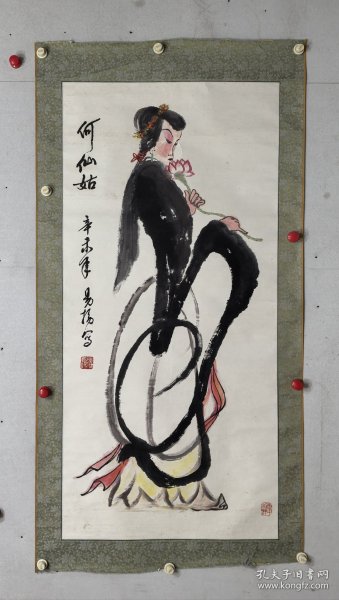 何仙姑
辛未年 易楊写
孔夫子旧书网
www.kongfz.com